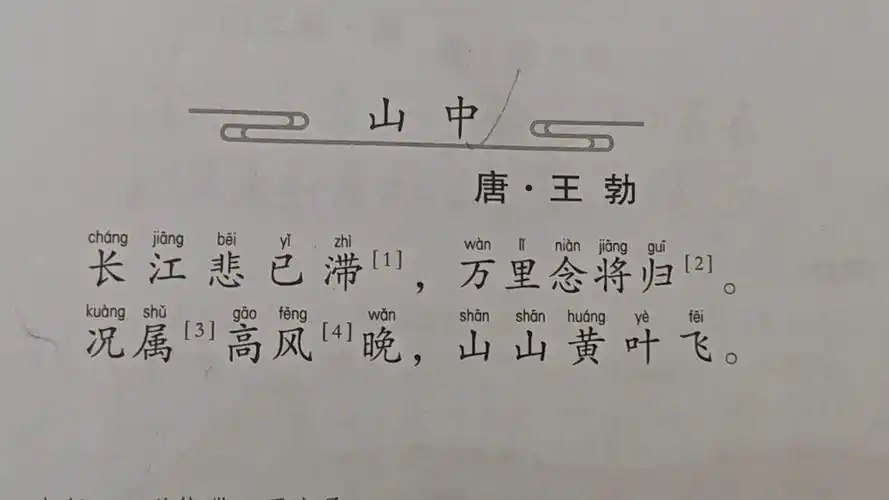 山中
唐·王勃
cháng jiāng bēi yǐ zhì wàn lǐ niàn jiāng guī
长江悲已滞[1]，万里念将归[2]。
kuàng shǔ gāo fēng wǎn shān shān huáng yè fēi
况属[3]高风[4]晚，山山黄叶飞。